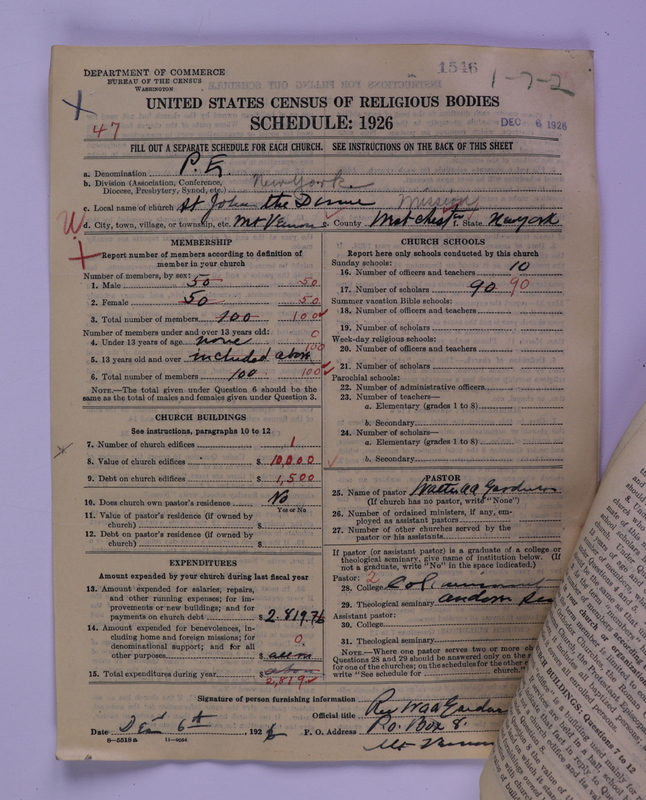 DEPARTMENT OF COMMERCE
BUREAU OF THE CENSUS
WASHINGTON
1516
1-7-2
UNITED STATES CENSUS OF RELIGIOUS BODIES
SCHEDULE: 1926
47
DEC 6 1926
FILL OUT A SEPARATE SCHEDULE FOR EACH CHURCH. SEE INSTRUCTIONS ON THE BACK OF THIS SHEET
a. Denomination P. E.
b. Division (Association, Conference, Diocese, Presbytery, Synod, etc.) New York
c. Local name of church St John the Divine Mission
d. City, town, village, or township, etc. Mt Vernon e. County Westchester f. State New York
MEMBERSHIP
Report number of members according to definition of member in your church
Number of members, by sex:
1. Male 50 50
2. Female 50 50
3. Total number of members 100 100
Number of members under and over 13 years old:
4. Under 13 years of age none 0
5. 13 years old and over included above 100
6. Total number of members 100 100
NOTE.—The total given under Question 6 should be the same as the total of males and females given under Question 3.
CHURCH BUILDINGS
See instructions, paragraphs 10 to 12
7. Number of church edifices 1
8. Value of church edifices $ 10,000
9. Debt on church edifices $ 1,500
10. Does church own pastor's residence No
Yes or No
11. Value of pastor's residence (if owned by church) $
12. Debt on pastor's residence (if owned by church) $
EXPENDITURES
Amount expended by your church during last fiscal year
13. Amount expended for salaries, repairs, and other running expenses; for improvements or new buildings; and for payments on church debt $ 2,819.76
14. Amount expended for benevolences, including home and foreign missions; for denominational support; and for all other purposes $ 0
15. Total expenditures during year $ above
2,819
CHURCH SCHOOLS
Report here only schools conducted by this church
Sunday schools:
16. Number of officers and teachers 10
17. Number of scholars 90 90
Summer vacation Bible schools:
18. Number of officers and teachers
19. Number of scholars
Week-day religious schools:
20. Number of officers and teachers
21. Number of scholars
Parochial schools:
22. Number of administrative officers
23. Number of teachers—
a. Elementary (grades 1 to 8)
b. Secondary
24. Number of scholars—
a. Elementary (grades 1 to 8)
b. Secondary
PASTOR
25. Name of pastor
(If church has no pastor, write "None")
26. Number of ordained ministers, if any, employed as assistant pastors
27. Number of other churches served by the pastor or his assistants
If pastor (or assistant pastor) is a graduate of a college or theological seminary, give name of institution below. (If not a graduate, write "No" in the space indicated.)
Pastor: 2
28. College
29. Theological seminary
Assistant pastor:
30. College
31. Theological seminary
NOTE.—Where one pastor serves two or more
Questions 28 and 29 should be answered only on the
for one of the churches; on the schedules for the other
write "See schedule for church."
Signature of person furnishing information
Official title
Date Dec 6th 1926 P. O. Address P.o. Box 8.
Mt Vernon
8—5518a 11—9054